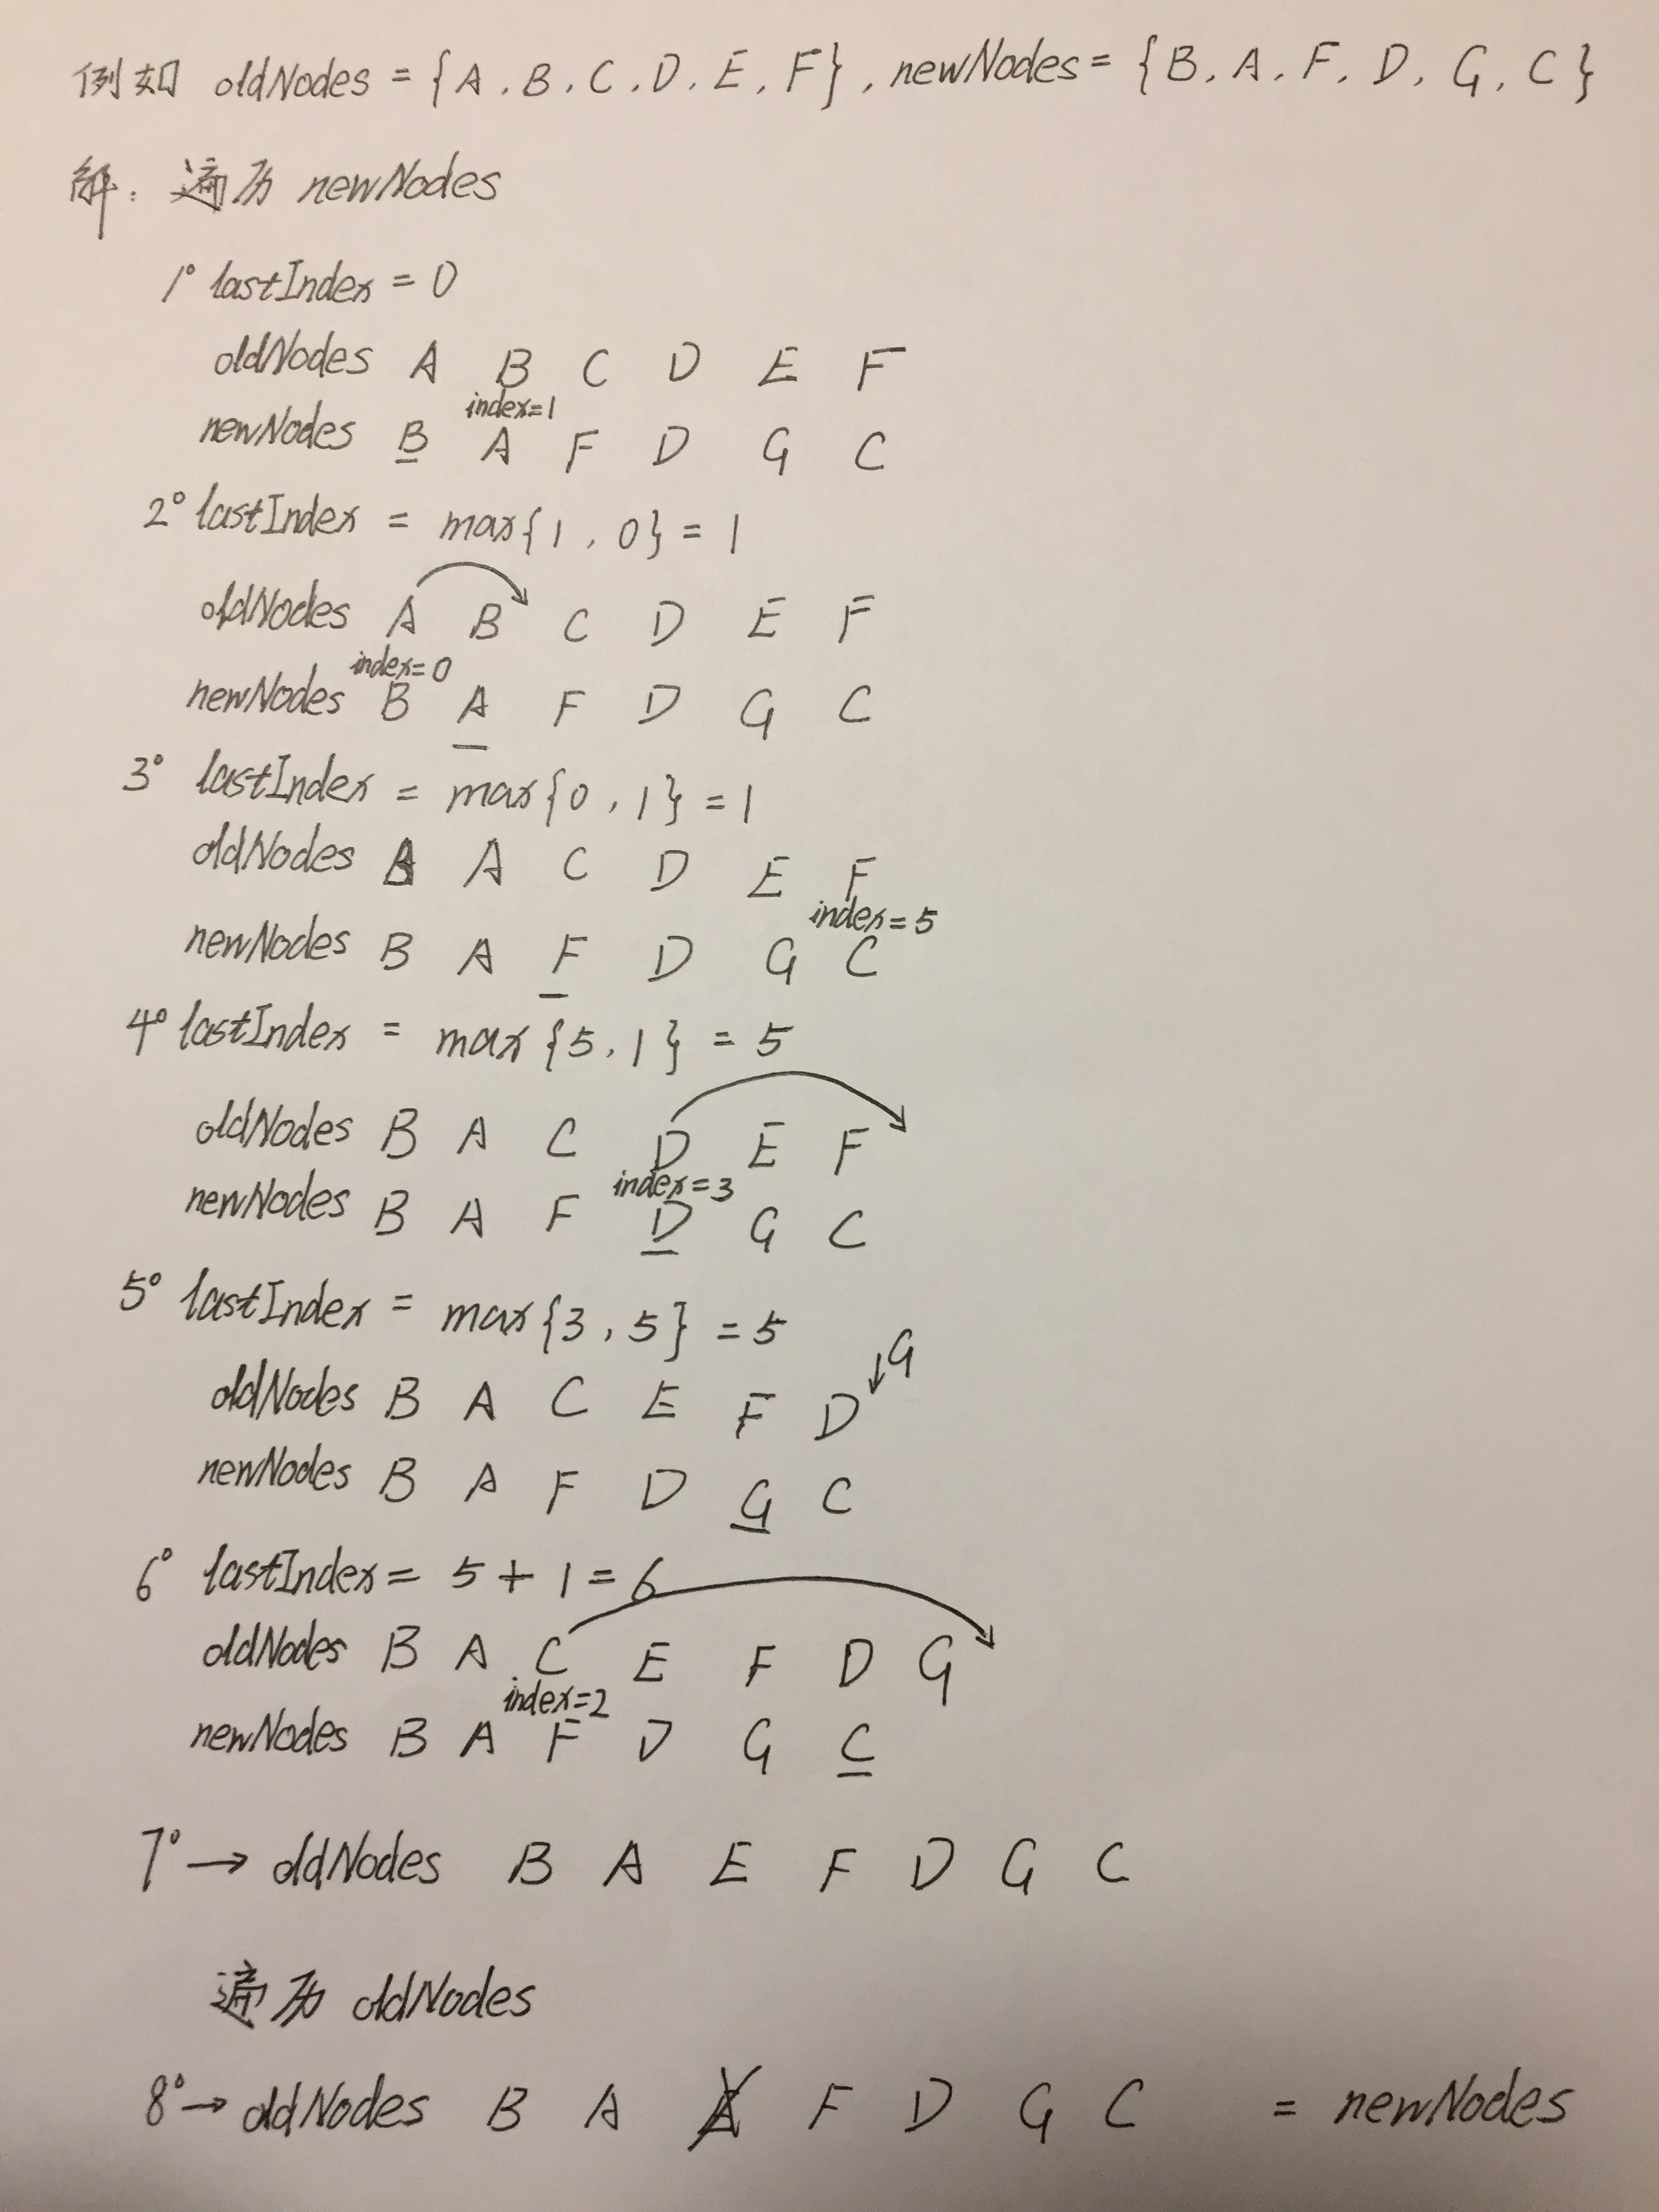 例如 oldNodes = {A, B, C, D, E, F}, newNodes = {B, A, F, D, G, C}
解: 遍历 newNodes
1° lastIndex = 0
oldNodes A B C D E F
index=1
newNodes B A F D G C
2° lastIndex = max{1, 0} = 1
oldNodes A B C D E F
index=0
newNodes B A F D G C
3° lastIndex = max{0, 1} = 1
oldNodes B A C D E F
index=5
newNodes B A F D G C
4° lastIndex = max{5, 1} = 5
oldNodes B A C D E F
index=3
newNodes B A F D G C
5° lastIndex = max{3, 5} = 5
↓G
oldNodes B A C E F D
newNodes B A F D G C
6° lastIndex = 5 + 1 = 6
oldNodes B A C E F D G
index=2
newNodes B A F D G C
7° → oldNodes B A E F D G C
遍历 oldNodes
8° → oldNodes B A E F D G C = newNodes